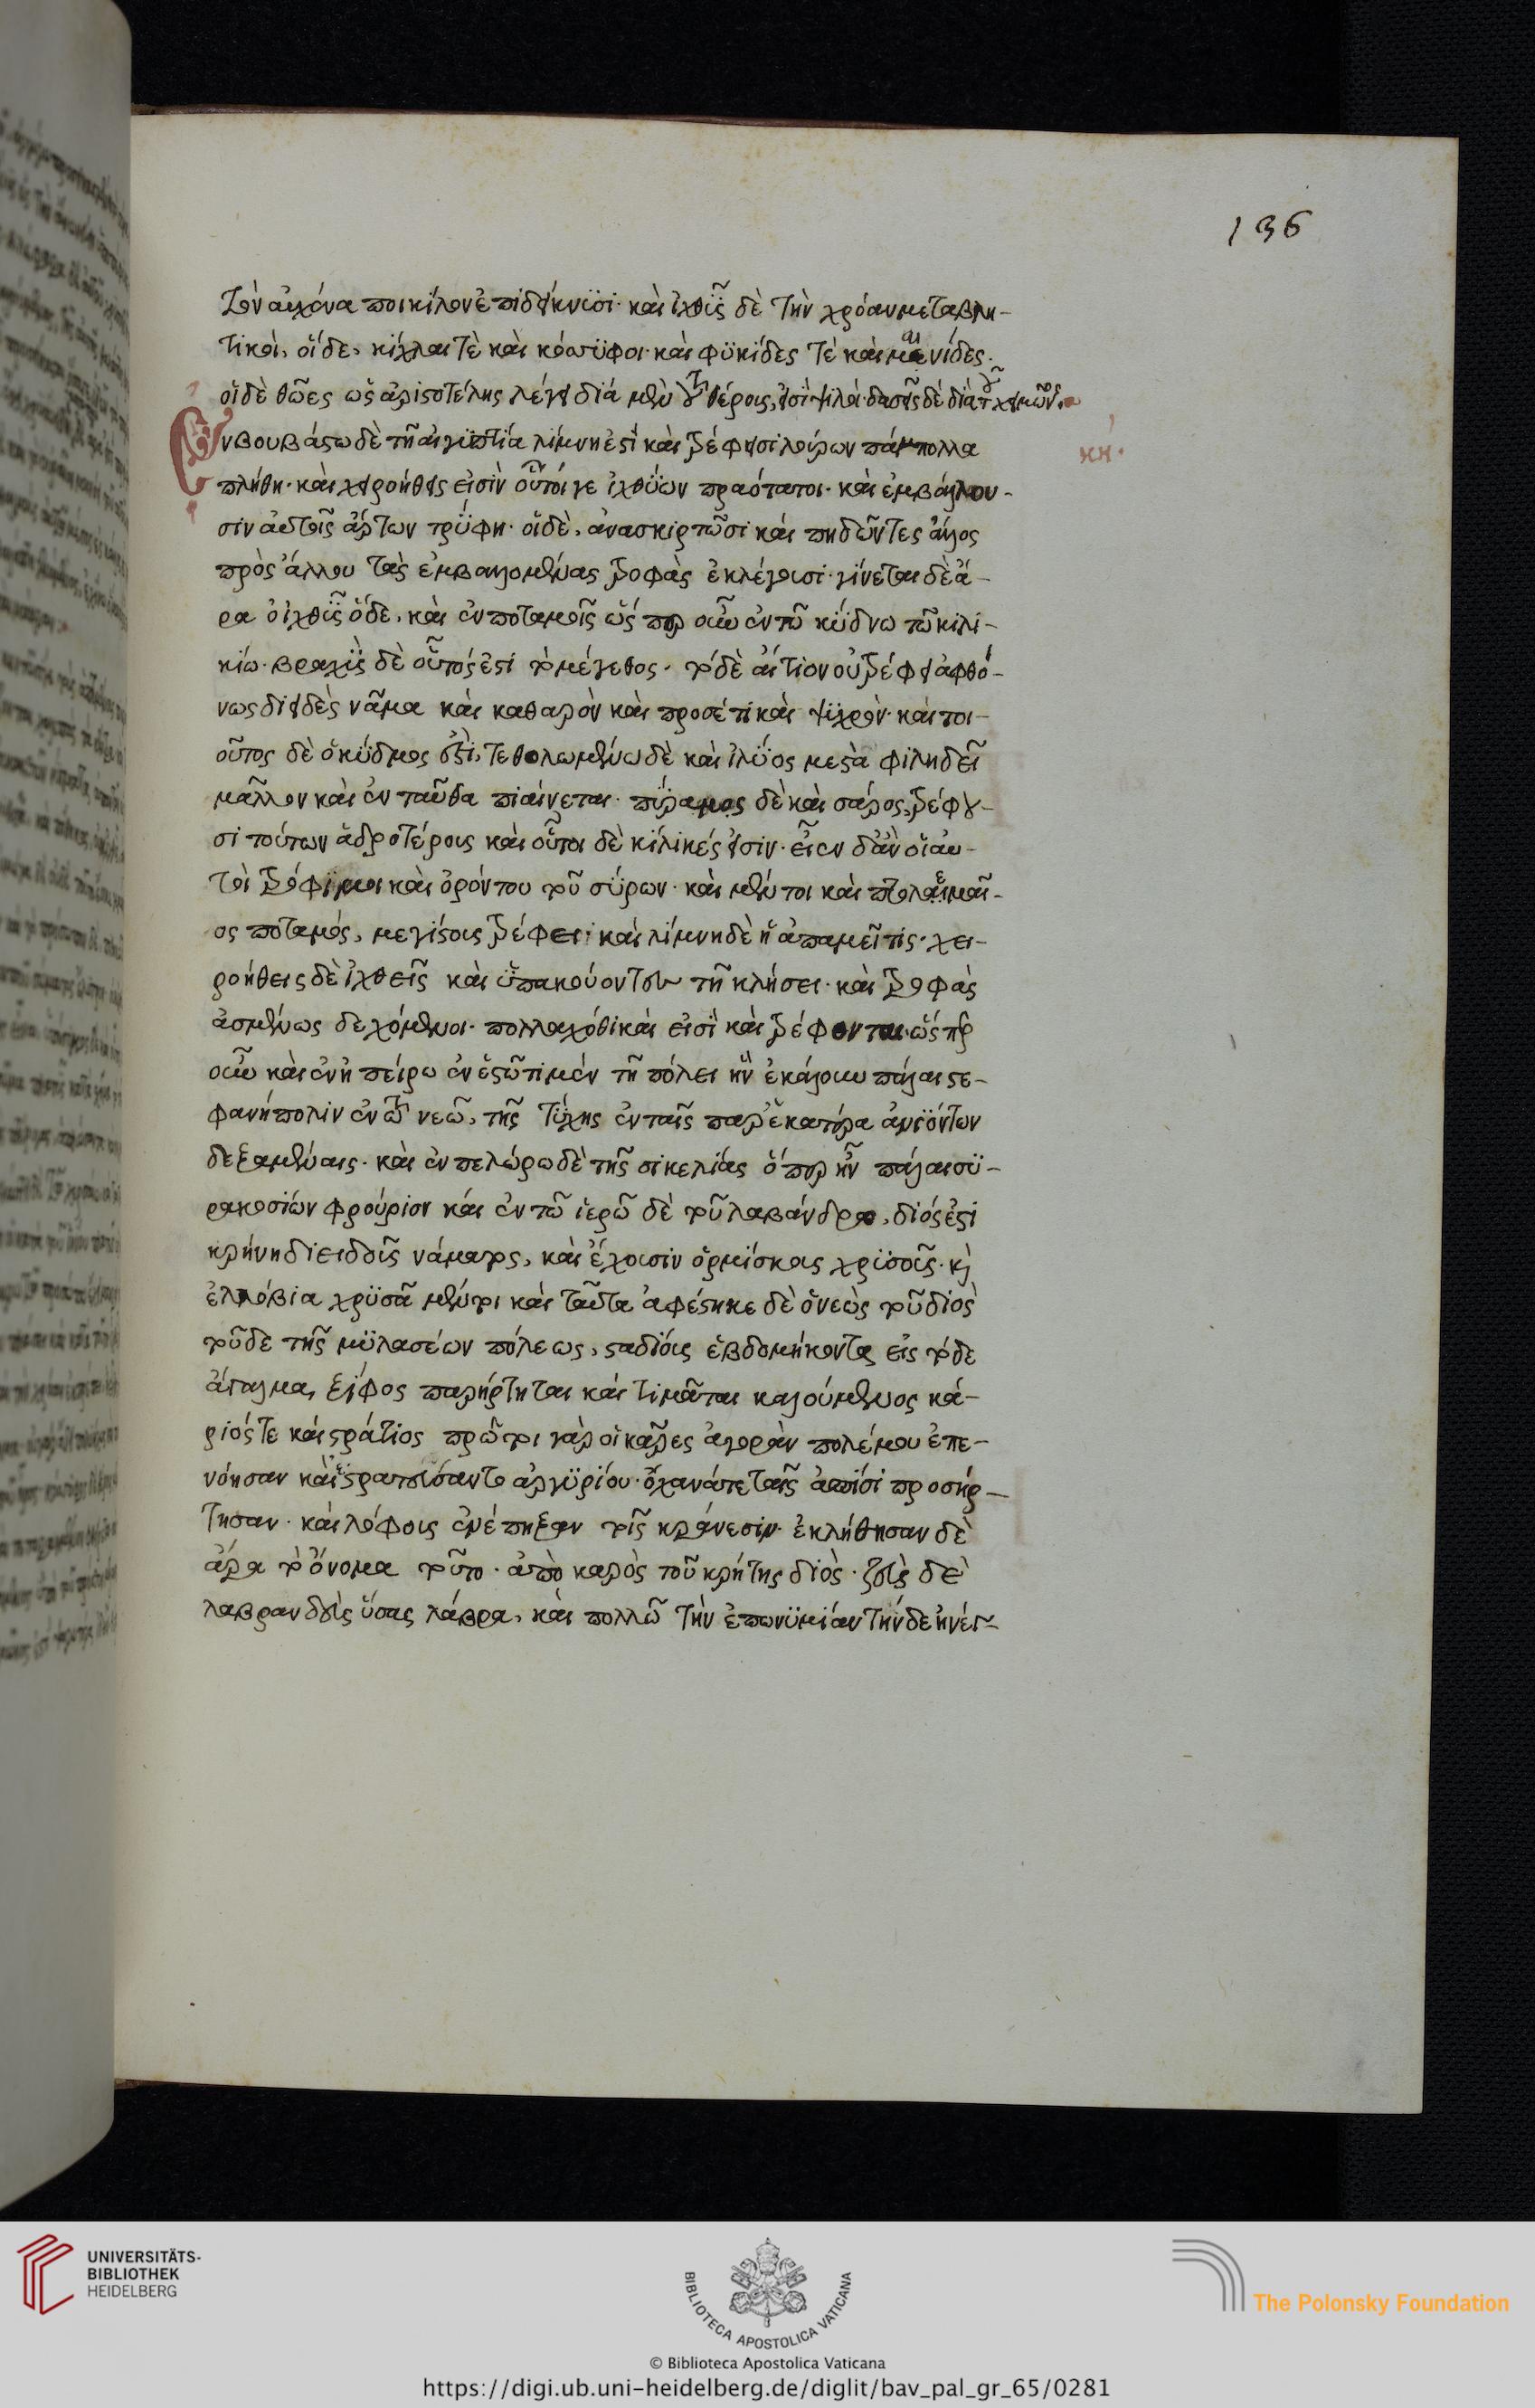 136
τὸν αὐχένα ποικίλον ἐπιδείκνυσι· καὶ ἰχθῦς δὲ τὴν χρόαν μεταβλη-
τικοὶ, οἵδε, κίχλαι τὲ καὶ κόσσυφοι· καὶ φυκίδες τὲ καὶ μαινίδες·
οἱ δὲ θῶες ὡς ἀριστοτέλης λέγει διὰ μὲν τοῦ θέρους, εἰσὶ ψιλοὶ· δασεῖς δὲ διὰ τοῦ χειμῶνος
κη·
Ἐν βουβάστω δὲ τῆ αἰγυπτία λίμνη ἐστὶ καὶ τρέφει σιλούρων πάμπολλα
πλήθη· καὶ χειροήθεις εἰσὶν οὗτοί γε ἰχθύων πραότατοι· καὶ ἐμβάλλου-
σιν αὐτοῖς ἄρτων τρύφη· οἱ δὲ, ἀνασκιρτῶσι καὶ πηδῶντες ἄλλος
πρὸς ἄλλου τὰς ἐμβαλλομένας τροφὰς ἐκλέγουσι· γίνεται δὲ ἄ-
ρα ὁ ἰχθῦς ὅδε, καὶ ἐν ποταμοῖς ὥσπερ οὖν ἐν τῶ κύδνω τῶ κιλι-
κίω· βραχὺς δὲ οὗτός ἐστι τὸ μέγεθος· τὸ δὲ αἴτιον οὐ τρέφει ἀφθό-
νως διειδὲς νᾶμα καὶ καθαρὸν καὶ προσέτι καὶ ψυχρὸν· καὶ τοι-
οῦτος δὲ ὁ κύδνος ἐστὶ, τεθολωμένω δὲ καὶ ἰλύος μεστὰ φιληδεῖ
μᾶλλον καὶ ἐνταῦθα πιαίνεται· πύραμος δὲ καὶ σάρος, τρέφου-
σι τούτων ἁδροτέρους καὶ οὗτοι δὲ κίλικές εἰσιν· εἶεν δ' ἂν οἱ αὐ-
τοὶ τρόφιμοι καὶ ὀρόντου τοῦ σύρων· καὶ μέντοι καὶ πτολεμαῖ-
ος ποταμός, μεγίστους τρέφει· καὶ λίμνη δὲ ἡ ἀπαμεῖτις· χει-
ροήθεις δὲ ἰχθεῖς καὶ ὑπακούοντες τῆ κλήσει· καὶ τροφὰς
ἀσμένως δεχόμενοι· πολλαχόθι καὶ εἰσὶ καὶ τρέφονται, ὥσπερ
οὖν καὶ ἐν ἠπείρω ἐν ἑστῶτι μὲν τῆ πόλει ἣν ἐκάλουν πάλαι στε-
φανήπολιν ἐν τῶ νεῶ, τῆς τύχης ἐν ταῖς παρ' ἑκάτερα ἀνιόντων
δεξαμέναις· καὶ ἐν πελώρω δὲ τῆς σικελίας ὅπερ ἦν πάλαι συ-
ρακοσίων φρούριον καὶ ἐν τῶ ἱερῶ δὲ τοῦ λαβάνδρα, διός ἐστι
κρήνη διειδοῦς νάματος, καὶ ἔχουσιν ὁρμίσκους χρυσοῦς· κὶ
ἐλλόβια χρυσᾶ μέντοι καὶ ταῦτα ἀφέστηκε δὲ ὁ νεὼς τοῦ διὸς
τοῦδε τῆς μυλασέων πόλεως, σταδίους ἑβδομήκοντα εἰς τόδε
ἄγαλμα, ξίφος παρήρτηται καὶ τιμᾶται καλούμενος κά-
ριός τε καὶ στράτιος πρῶτοι γὰρ οἱ κᾶρες ἀγορὰν πολέμου ἐπε-
νόησαν καὶ ἐστρατεύσαντο ἀργυρίου· ὄχανά τε ταῖς ἀσπίσι προσήρ-
τησαν· καὶ λόφους ἐνέπηξαν τοῖς κράνεσιν· ἐκλήθησαν δὲ
ἄρα τὸ ὄνομα τοῦτο· ἀπὸ καρὸς τοῦ κρήτης διὸς· ζεὺς δὲ
λαβρανδεὺς ὕσας λάβρα, καὶ πολλῶ τὴν ἐπωνυμίαν τήνδε ἠνέγ-
UNIVERSITÄTS-
BIBLIOTHEK
HEIDELBERG
BIBLIOTECA APOSTOLICA VATICANA
The Polonsky Foundation
© Biblioteca Apostolica Vaticana
https://digi.ub.uni-heidelberg.de/diglit/bav_pal_gr_65/0281